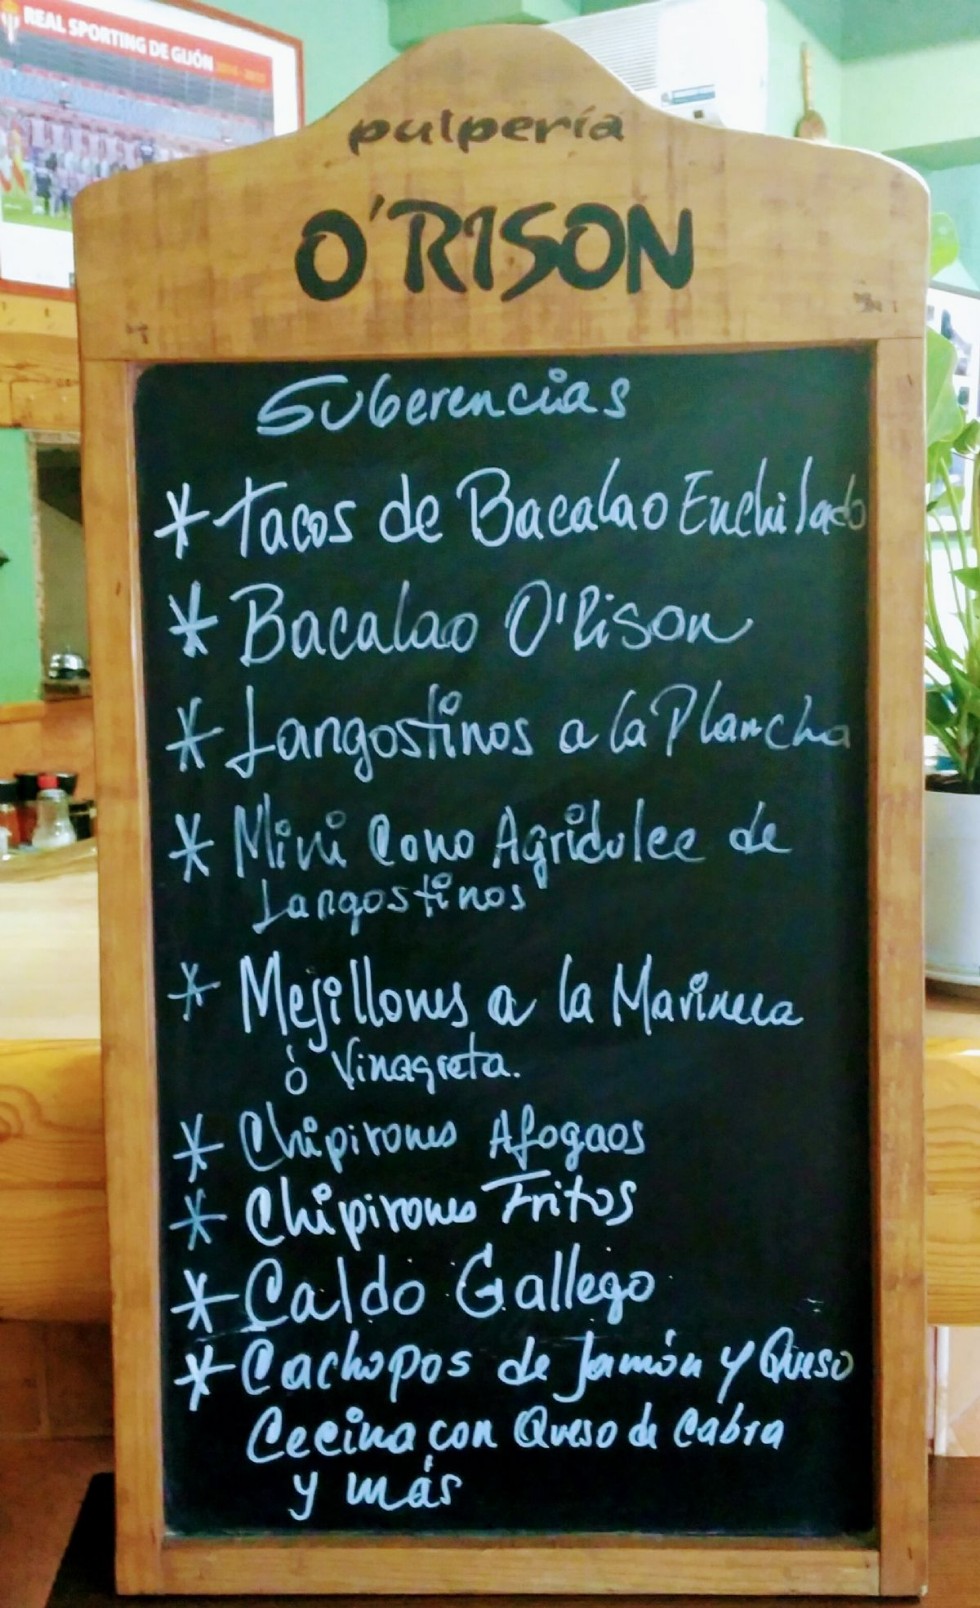 REAL SPORTING DE GIJÓN
pulpería
O'RISON
Sugerencias
* Tacos de Bacalao Enchilado
* Bacalao O'Rison
* Langostinos a la Plancha
* Mini Cono Agridulce de
Langostinos
* Mejillones a la Marinera
ó Vinagreta.
* Chipirones Afogaos
* Chipirones Fritos
* Caldo Gallego
* Cachopos de Jamón y Queso
Cecina con Queso de Cabra
y más